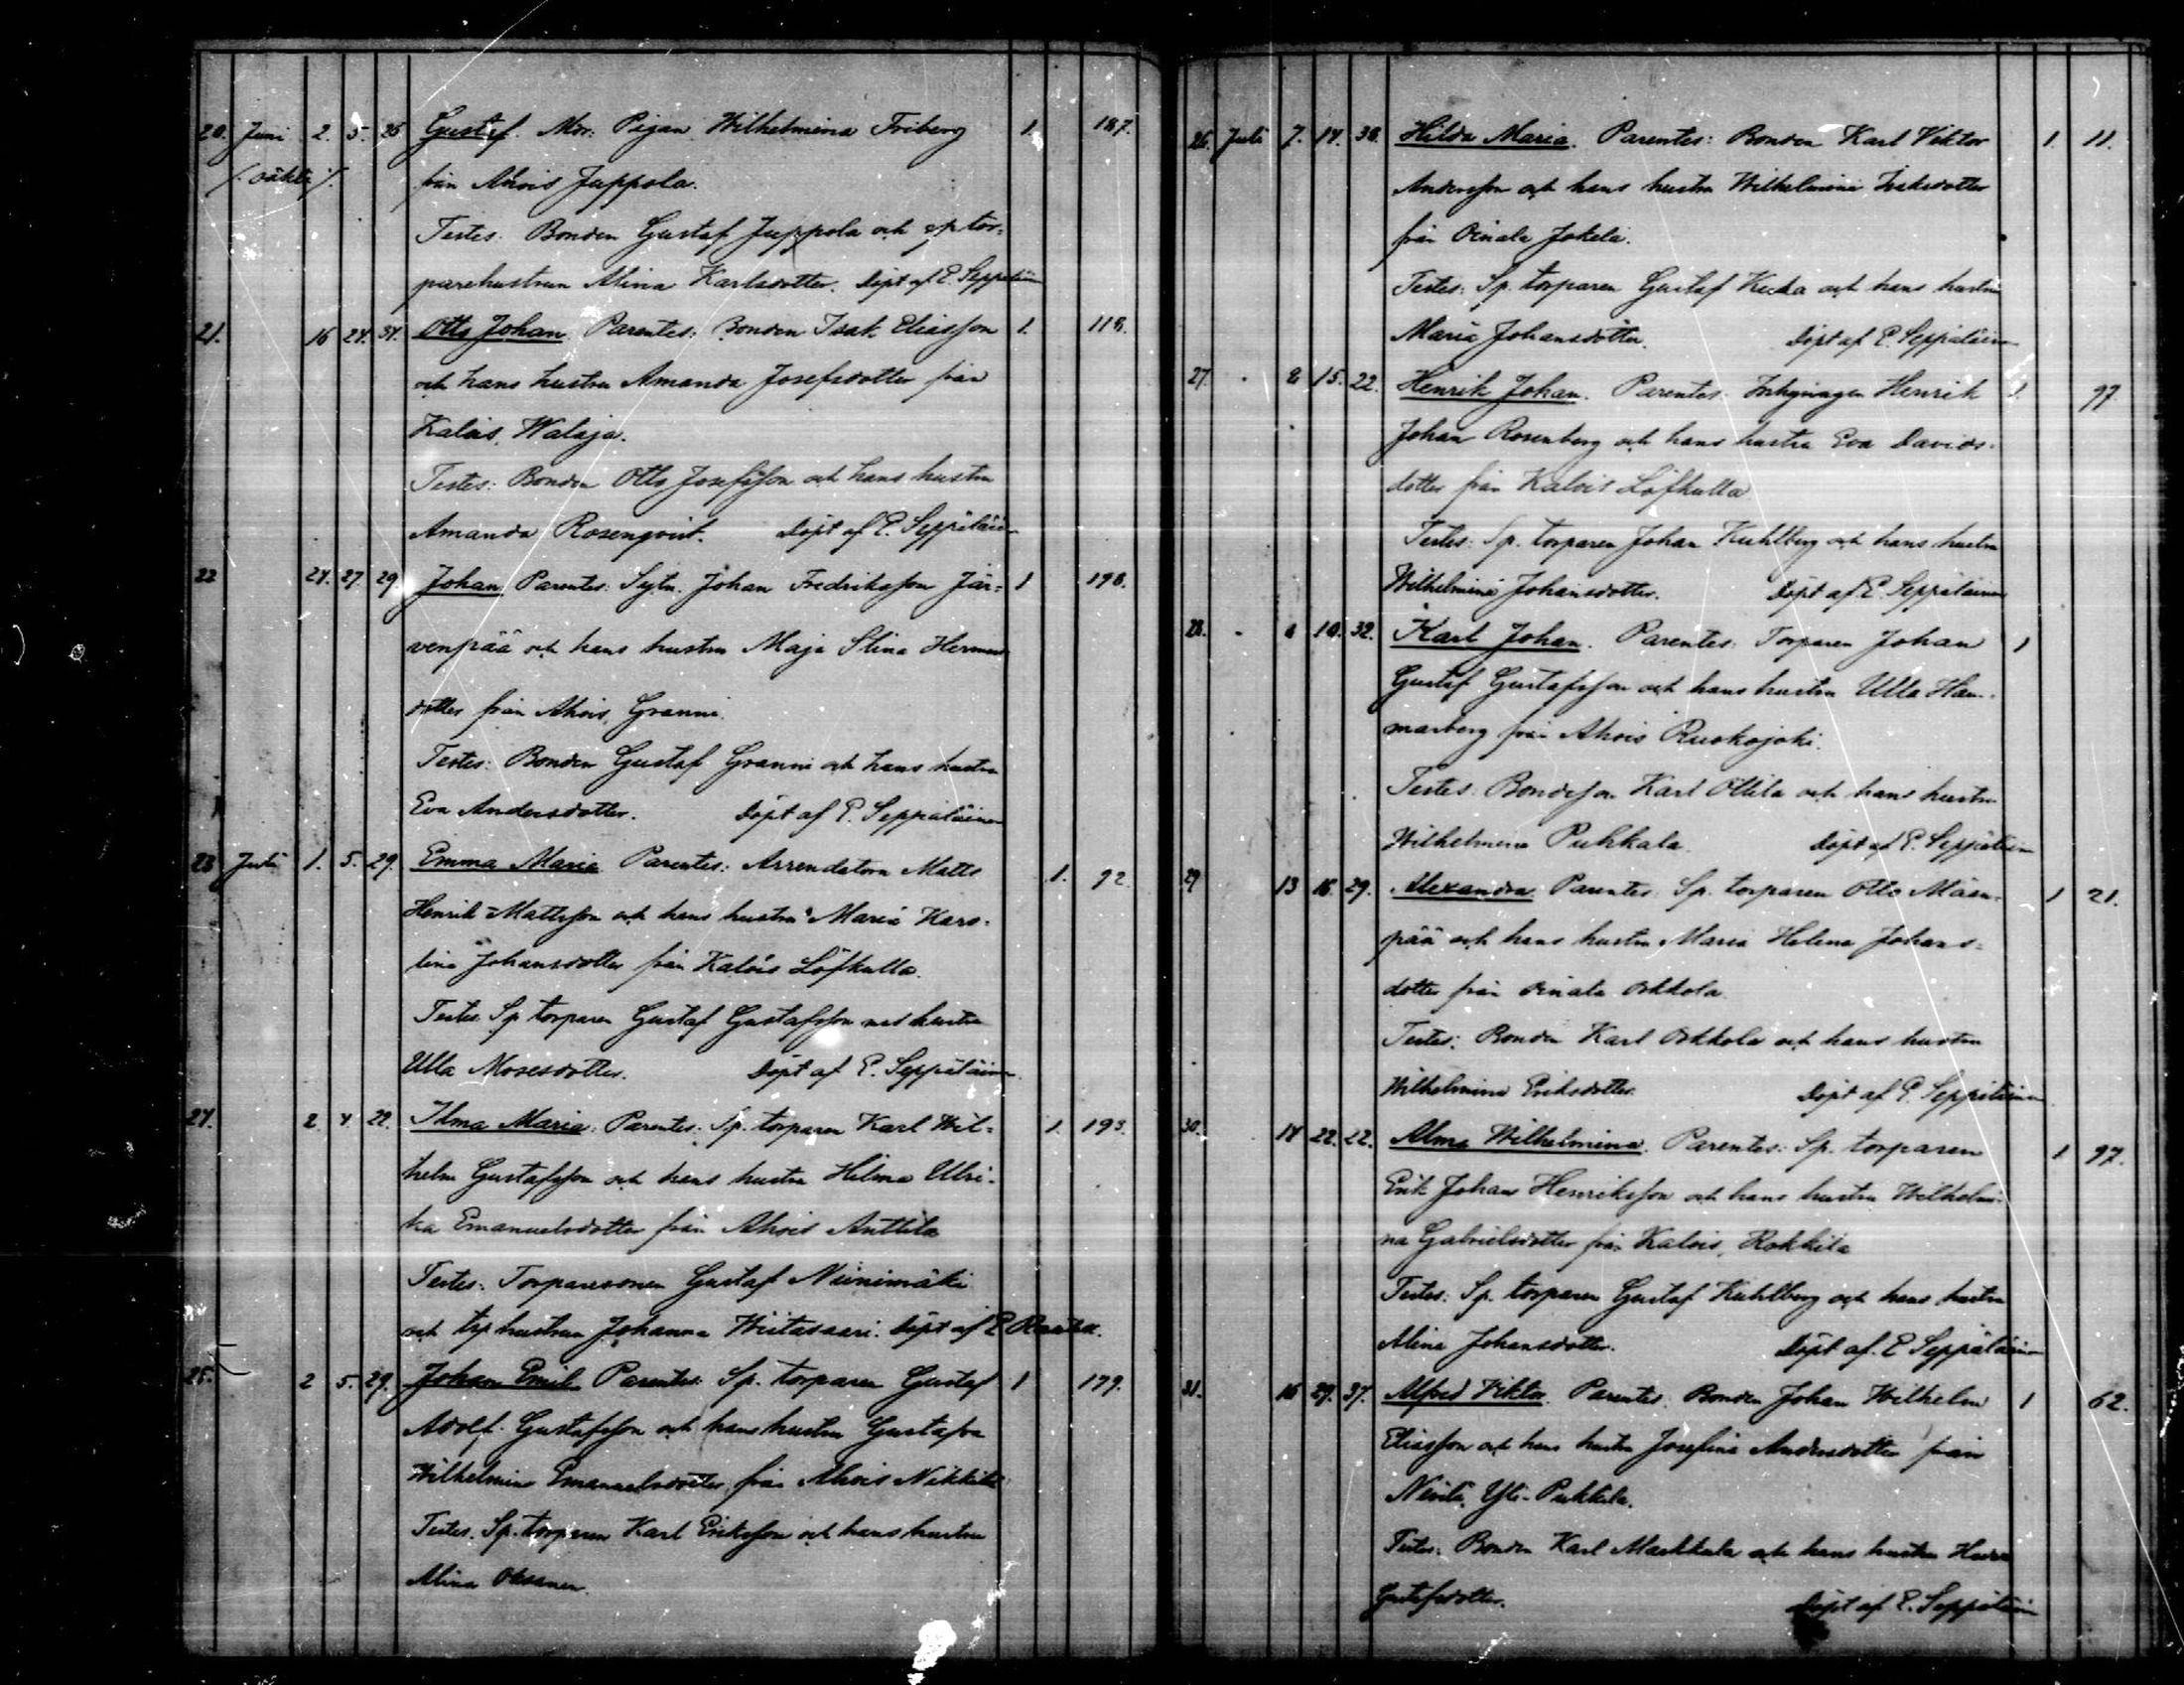 20. Juni 2. 5. 26 Gustaf. Mor: Pigan Wilhelmina Friberg 1. 187.
/. oäkta ./ från Ahois Juppola.
Testes: Bonden Gustaf Juppola och sp tor=
parehustrun Alina Karlsdotter. Döpt af E. Seppäläinen
21. 16 24. 34. Otto Johan. Parentes: Bonden Isak Eliasson 1. 118.
och hans hustru Amanda Josefsdotter från
Kalois, Walaja.
Testes: Bonden Otto Josefsson och hans hustru
Amanda Rosenqvist. Döpt af E. Seppäläinen
22 24. 27 29. Johan. Parentes: Sytn. Johan Fredriksson Jär= 1 198.
venpää och hans hustru Maja Stina Hermans
dotter från Ahois, Granni.
Testes: Bonden Gustaf Granni och hans hustru
Eva Andersdotter. Döpt af E. Seppäläinen
23 Juli 1. 5. 29. Emma Maria. Parentes: Arrendatorn Matts 1. 92.
Henrik Mattsson och hans hustru Maria Karo-
lina Johansdotter från Kalois Löfkulla.
Testes: Sp torparen Gustaf Gustafsson med hustru
Ulla Mosesdotter. Döpt af E. Seppäläinen
24. 2. 4. 22. Ilma Maria. Parentes: Sp. torparen Karl Wil= 1. 193.
helm Gustafsson och hans hustru Hilma Ulri-
ka Emanuelsdotter från Ahois Anttila
Testes: Torparesonen Gustaf Niinimäki
och trp hustrun Johanna Wiitasaari. Döpt af E
25. 2 5. 29. Johan Emil. Parentes: Sp. torparen Gustaf 1 179.
Adolf Gustafsson och hans hustru Gustafva
Wilhelmina Emanuelsdotter från Ahois Nikkilä
Testes: Sp. torparen Karl Eriksson och hans hustru
Alina Oksanen.
26. Juli 7. 14. 38. Hilda Maria. Parentes: Bonden Karl Viktor 1 11.
Andersson och hans hustru Wilhelmina Isaksdotter
från Oinala Jokela.
Testes: Sp. torparen Gustaf och hans hustru
Maria Johansdotter. Döpt af E. Seppäläinen
27. " 8 15. 22. Henrik Johan. Parentes: Inhysingen Henrik 1. 97.
Johan Rosenberg och hans hustru Eva Davids-
dotter från Kalois Löfkulla
Testes: Sp. torparen Johan Kuhlberg och hans hustru
Wilhelmina Johansdotter. Döpt af E. Seppäläinen
28. " 8 10. 32. Karl Johan. Parentes: Torparen Johan 1
Gustaf Gustafsson och hans hustru Ulla Ham-
marberg från Ahois Ruokojoki.
Testes: Bondeson Karl Ollila och hans hustru
Wilhelmina Puhkala. Döpt af E. Seppäläinen
29 13 16. 29. Alexandra. Parentes: Sp. torparen Otto Mäen- 1 21.
pää och hans hustru Maria Helena Johans=
dotter från Oinala Orkkola.
Testes: Bonden Karl Orkkola och hans hustru
Wilhelmina Eriksdotter. Döpt af E. Seppäläinen
30. 14 22. 22. Alma Wilhelmina. Parentes: Sp. torparen 1 97.
Erik Johan Henriksson och hans hustru Wilhelmi-
na Gabrielsdotter från Kalois, Rokkila
Testes: Sp. torparen Gustaf Kuhlberg och hans hustru
Alina Johansdotter. Döpt af. E Seppäläinen
31. 16 29. 37. Alfred Viktor. Parentes: Bonden Johan Wilhelm 1 62.
Eliasson och hans hustru Josefina Andersdotter från
Yli-Pukkila.
Testes: Bonden Karl Markkula och hans hustru
Gustafsdotter. Döpt af E. Seppäläinen